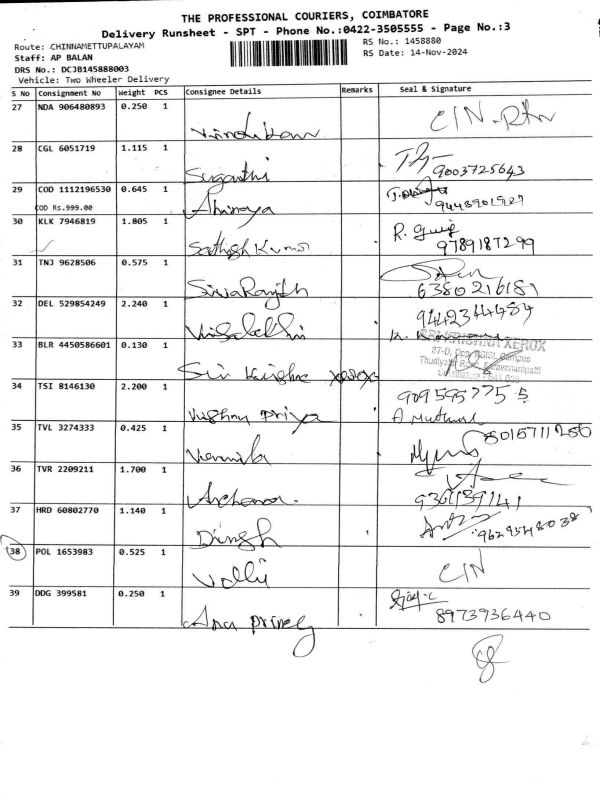 THE PROFESSIONAL COURIERS, COIMBATORE
Delivery Runsheet - SPT - Phone No.:0422-3505555 - Page No.:3
Route: CHINNAMETTUPALAYAM
RS No.: 1458880
Staff: AP BALAN
RS Date: 14-Nov-2024
DRS No.: DCJB145888003
Vehicle: Two Wheeler Delivery
S No Consignment No Weight PCS Consignee Details Remarks Seal & Signature
27 NDA 906480893 0.250 1
28 CGL 6051719 1.115 1 Suganthi 9003725643
29 COD 1112196530 0.645 1 Abinaya
COD Rs.999.00
30 KLK 7946819 1.805 1 Sathish Kumar 9789187299
31 TNJ 9628506 0.575 1 6380216181
32 DEL 529854249 2.240 1 9442344484
33 BLR 4450586601 0.130 1 Sri Krishna xerox SRI KRISHNA XEROX
34 TSI 8146130 2.200 1 Vishnu Priya 9095957755
35 TVL 3274333 0.425 1
36 TVR 2209211 1.700 1 Archana.
37 HRD 60802770 1.140 1 Dinesh 9629548038
38 POL 1653983 0.525 1 Valli CIN
39 DDG 399581 0.250 1 8973936440